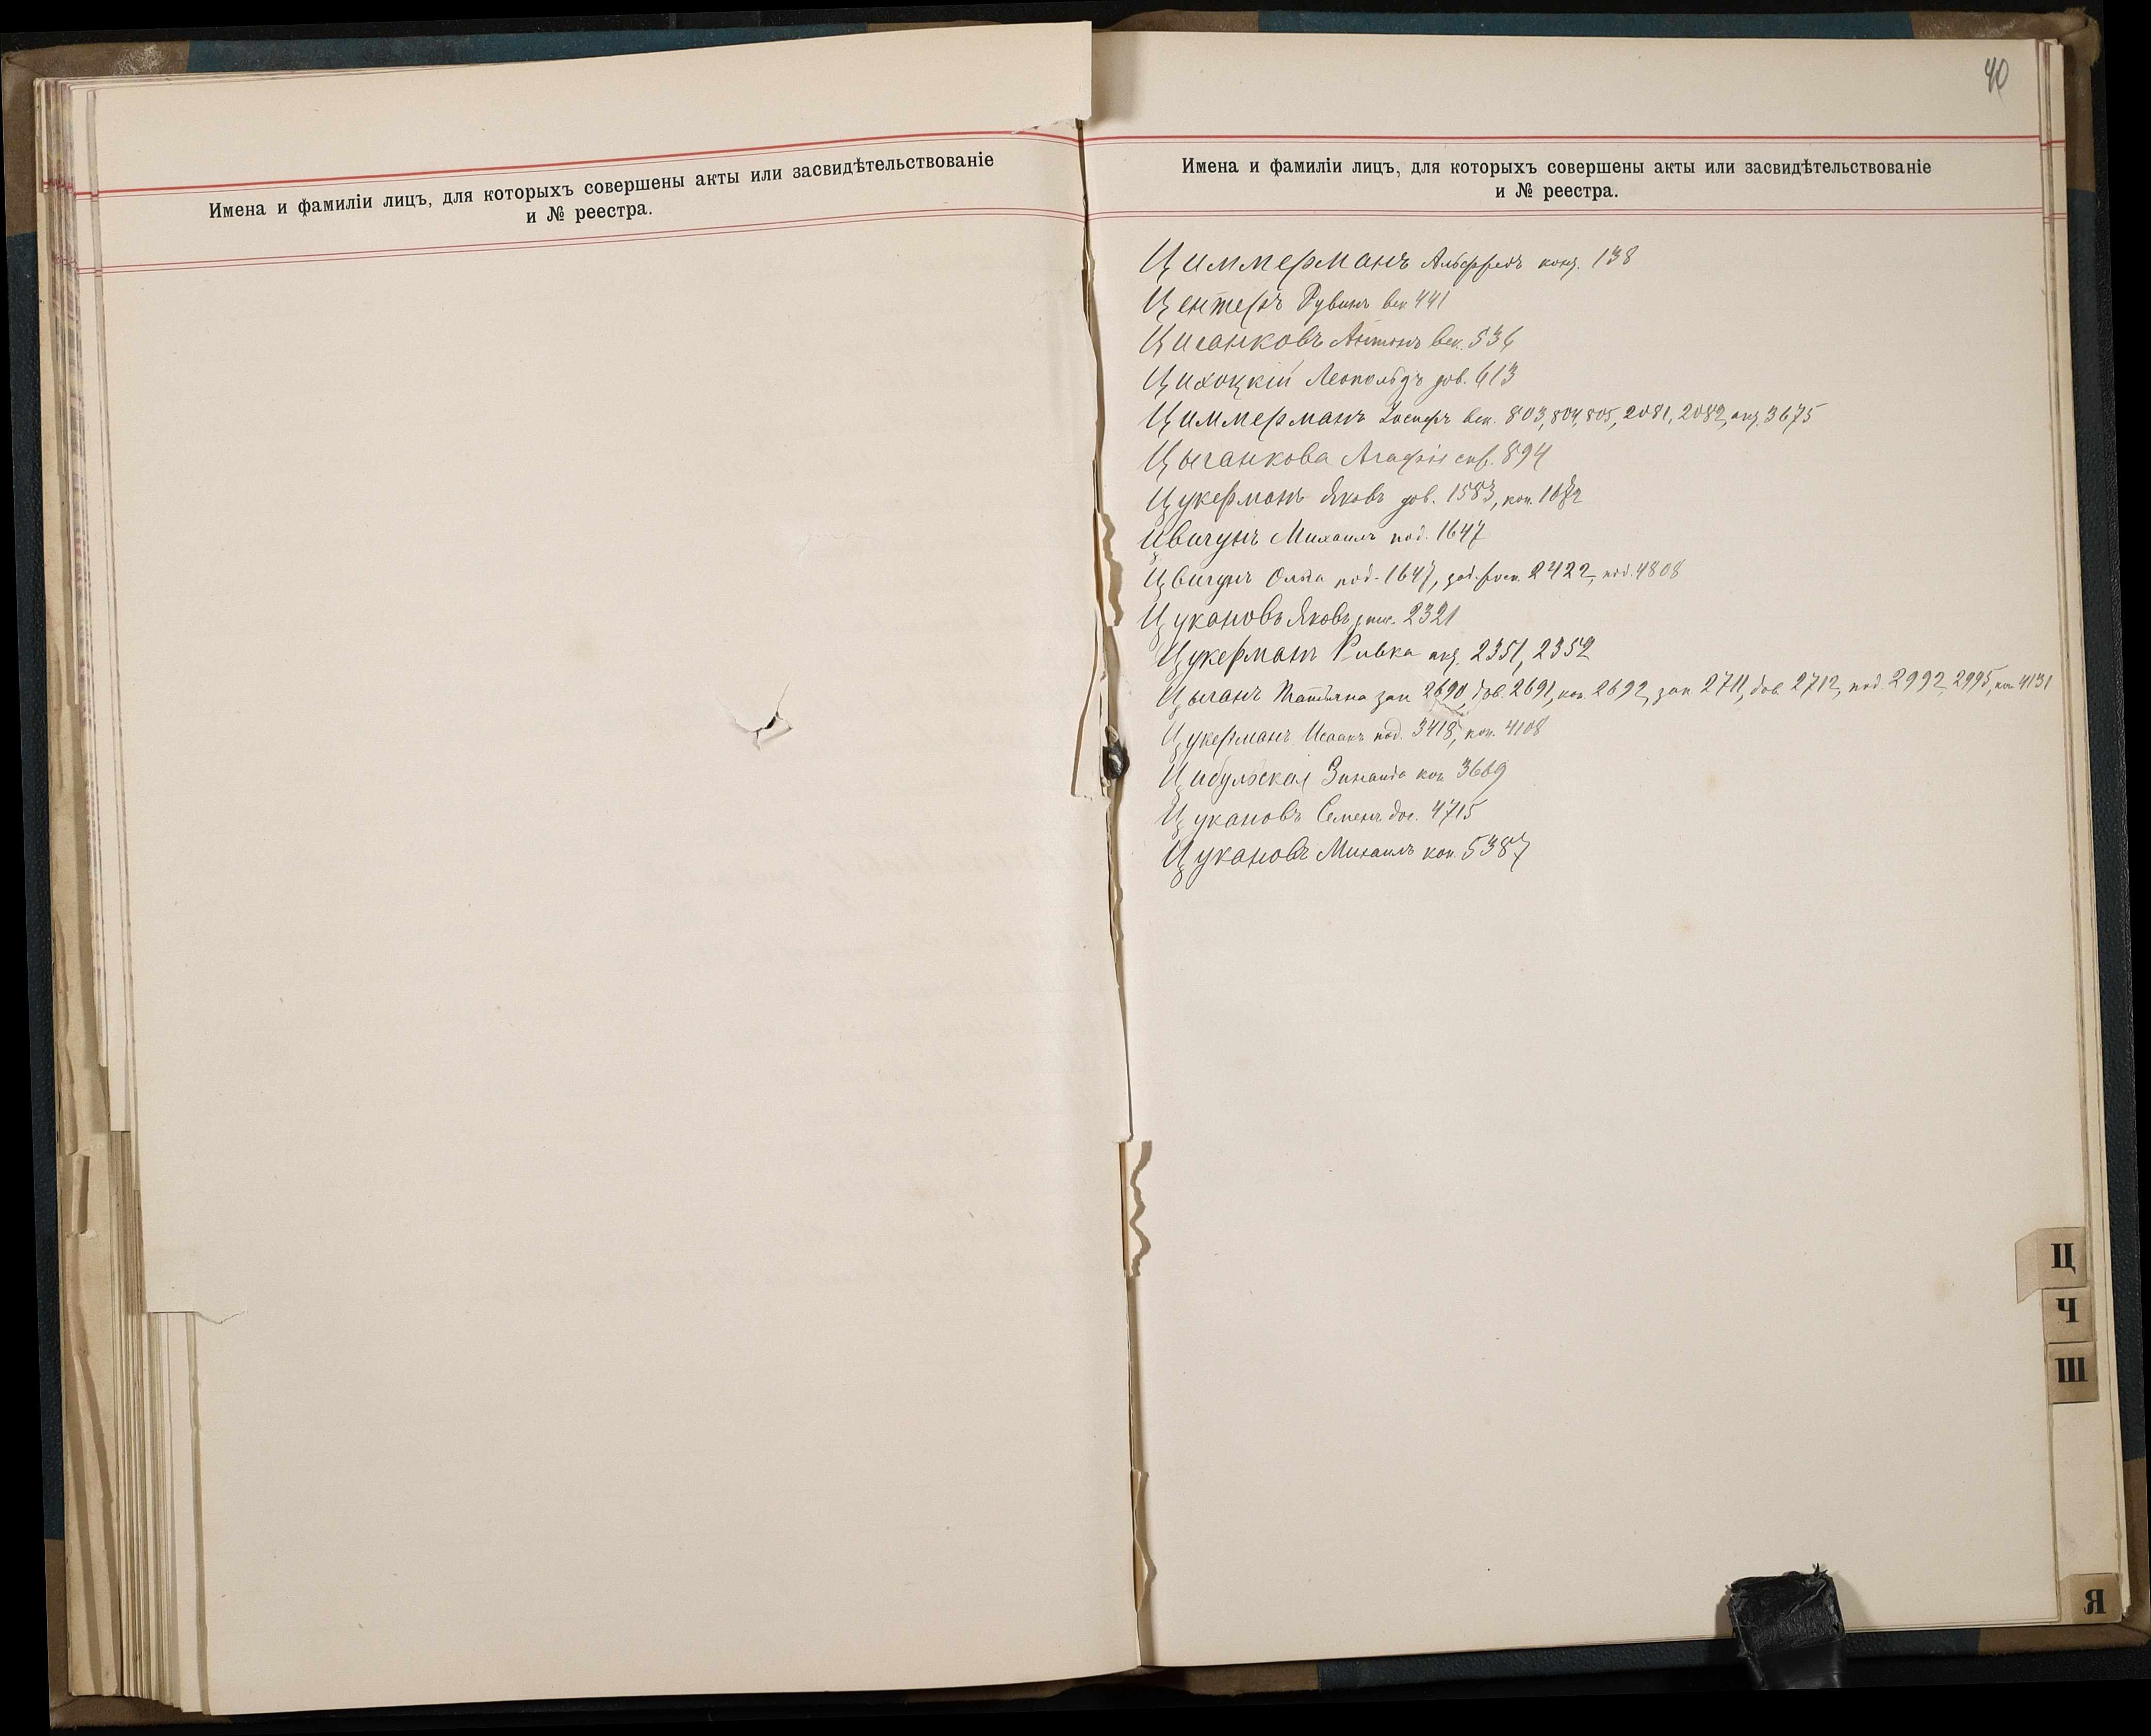 Имена и фамиліи лицъ, для которыхъ совершены акты или засвидѣтельствованіе
и № реестра.
40
Имена и фамиліи лицъ, для которыхъ совершены акты или засвидѣтельствованіе
и № реестра.
Циммерманъ Альфредъ 138
Центеръ Рувинъ век. 441
Циганковъ Антонъ век. 536
Цихоцкій Леопольдъ дов. 613
Циммерманъ Іосифъ век. 803, 804, 805, 2081, 2082, 3675
Цыганкова Агафія 894
Цукерманъ Яковъ дов. 1583, коп.
Цвигунъ Михаилъ под. 1647
Цвигунъ Ольга под. 1647, 2422, под. 4808
Цукановъ Яковъ 2321
Цукерманъ Ривка 2351, 2352
Цыганъ Татьяна зап. 2690, дов. 2691, коп. 2692, зап. 2711, дов. 2712, под. 2992, 2995, коп. 4131
Цукерманъ Исаакъ под. 3418, коп. 4108
Цибульская Зинаида коп. 3669
Цукановъ Семенъ 4715
Цукановъ Михаилъ коп. 5387
Ц
Ч
Ш
Я